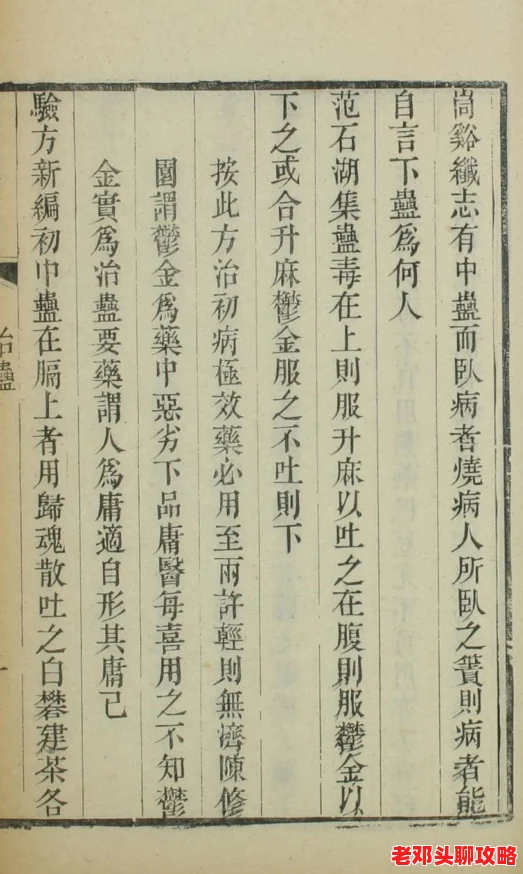 峝谿纖志有中蠱而臥病者燒病人所臥之簀則病者能
自言下蠱爲何人
范石湖集蠱毒在上則服升麻以吐之在腹則服鬱金以
下之或合升麻鬱金服之不吐則下
按此方治初病極效藥必用至兩許輕則無濟陳修
園謂鬱金爲藥中惡劣下品庸醫每喜用之不知鬱
金實爲治蠱要藥謂人爲庸適自形其庸已
驗方新編初中蠱在膈上者用歸魂散吐之白礬建茶各
治蠱
一
老邓头聊攻略